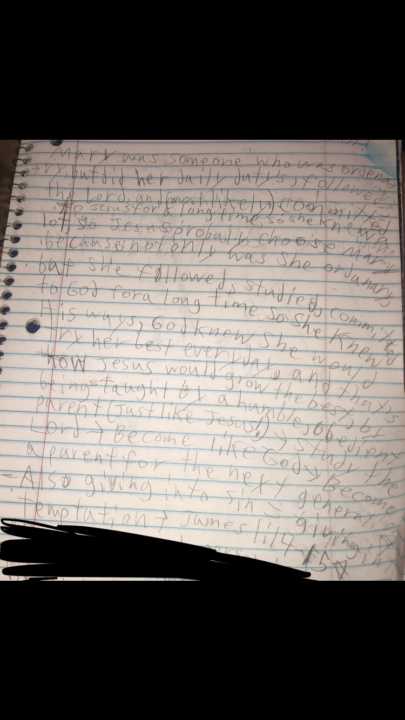 Mary was someone who was ordena
ery but did her daily dutys, followed
the Lord, and (most likely) committed
to Jesus for a long time, so she knew a
lot, so Jesus probaly choose Mary
because not only was she ordunary
but she followed, studied, commited
to God for a long time so she knew
His ways, God knew she would
try her best everyday, and thats
how Jesus would grow the best, by
being taught by a humble, obedient
parent (Just like Jesus) → study the
Lord → become like God → Become
a parent for the next generati
- Also giving into sin = giving in
temptation → James 1:14-15